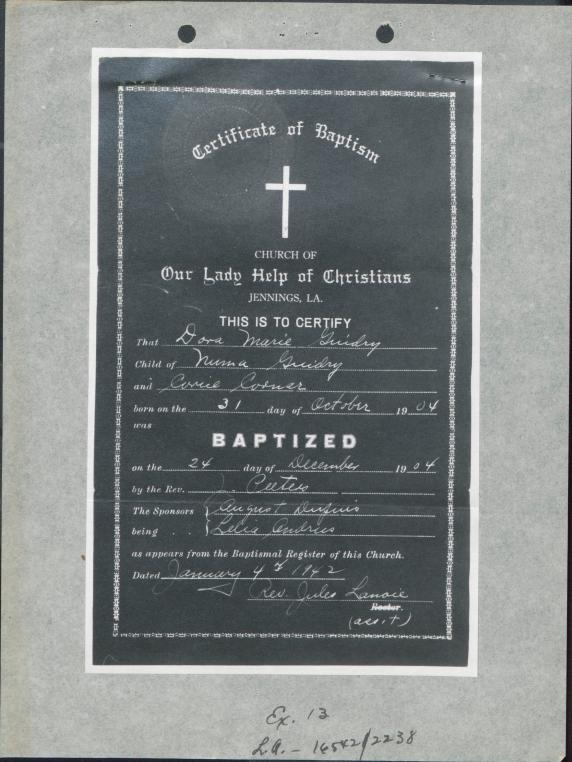 Certificate of Baptism
CHURCH OF
Our Lady Help of Christians
JENNINGS, LA.
THIS IS TO CERTIFY
That Dora Marie Guidry
Child of Numa Guidry
and Corrie Corner
born on the 31 day of October 1904
was
BAPTIZED
on the 24 day of December 1904
by the Rev. J. Peeters
The Sponsors August Dupuis
being Lelia Andrus
as appears from the Baptismal Register of this Church.
Dated January 4th 1942
Rev. Jules Lanoie
Rector.
(ass't)
Ex. 13
L.A. - 16542/2238